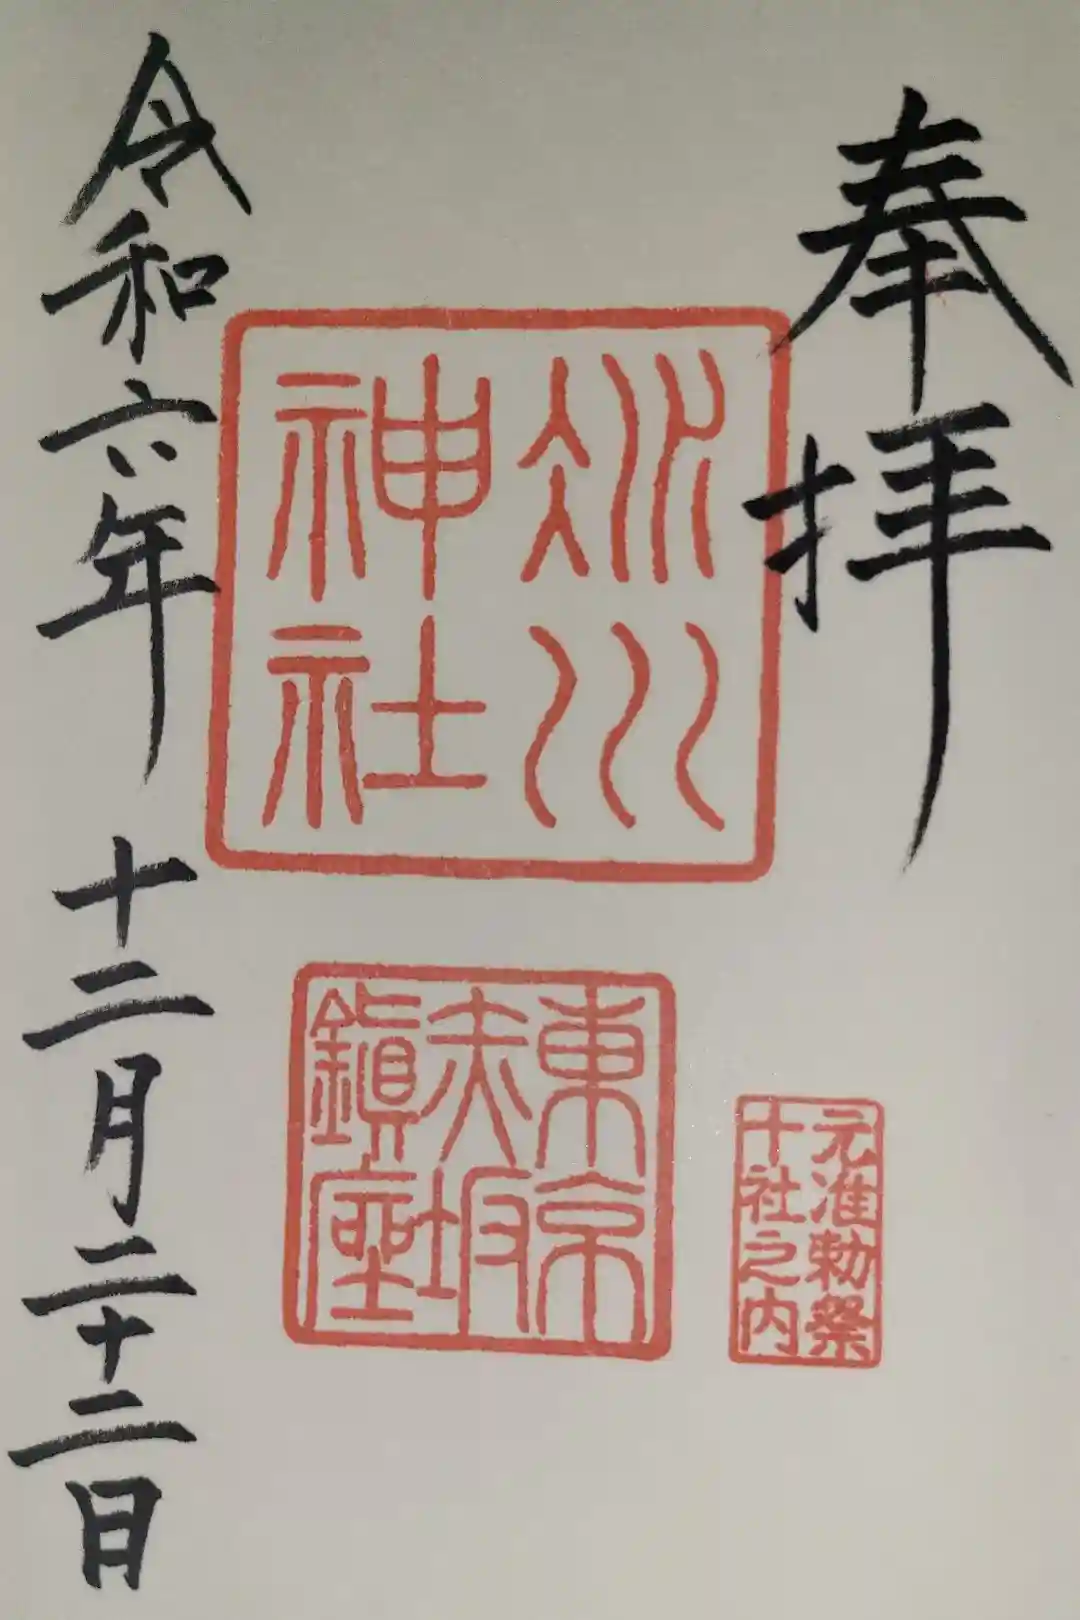 奉拝
冰川
神社
東京
赤坂
鎮座
元准勅祭
十社之内
令和六年 十二月二十二日